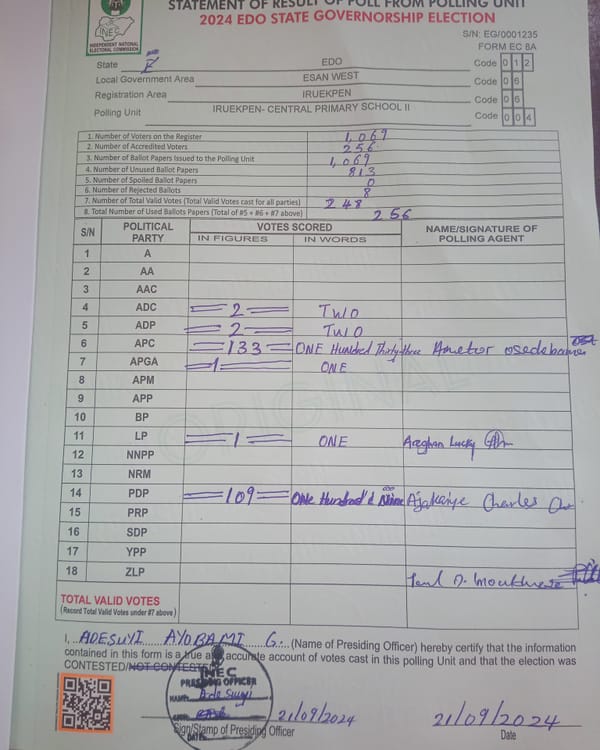 STATEMENT OF RESULT OF POLL FROM POLLING UNIT
2024 EDO STATE GOVERNORSHIP ELECTION
INEC
INDEPENDENT NATIONAL ELECTORAL COMMISSION
S/N: EG/0001235
FORM EC 8A
State EDO Code 0 1 2
Local Government Area ESAN WEST Code 0 6
Registration Area IRUEKPEN Code 0 6
Polling Unit IRUEKPEN- CENTRAL PRIMARY SCHOOL II Code 0 0 4
1. Number of Voters on the Register 1,069
2. Number of Accredited Voters 256
3. Number of Ballot Papers Issued to the Polling Unit 1,069
4. Number of Unused Ballot Papers 813
5. Number of Spoiled Ballot Papers 0
6. Number of Rejected Ballots 8
7. Number of Total Valid Votes (Total Valid Votes cast for all parties) 248
8. Total Number of Used Ballots Papers (Total of #5 + #6 + #7 above) 256
S/N POLITICAL PARTY VOTES SCORED NAME/SIGNATURE OF POLLING AGENT
IN FIGURES IN WORDS
1 A
2 AA
3 AAC
4 ADC 2 TWO
5 ADP 2 TWO
6 APC 133 ONE Hundred Thirty-three
7 APGA 1 ONE
8 APM
9 APP
10 BP
11 LP 1 ONE Lucky
12 NNPP
13 NRM
14 PDP 109 ONE Hundred Nine Ajakaiye Charles
15 PRP
16 SDP
17 YPP
18 ZLP
TOTAL VALID VOTES
(Record Total Valid Votes under #7 above)
ORIGINAL
I, ADESUYI AYOBAMI G. (Name of Presiding Officer) hereby certify that the information
contained in this form is a true and accurate account of votes cast in this polling Unit and that the election was
CONTESTED/NOT CONTESTED
INEC
PRESIDING OFFICER
NAME: Adesuyi
DATE:
21/09/2024 21/09/2024
Sign/Stamp of Presiding Officer Date